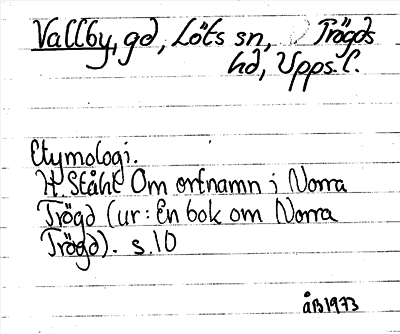 Vallby, gd, Löts sn, Trögds
hd, Upps. l.
Etymologi.
H. Ståhl Om ortnamn i Norra
Trögd (ur: En bok om Norra
Trögd). s. 10
ÅB 1973